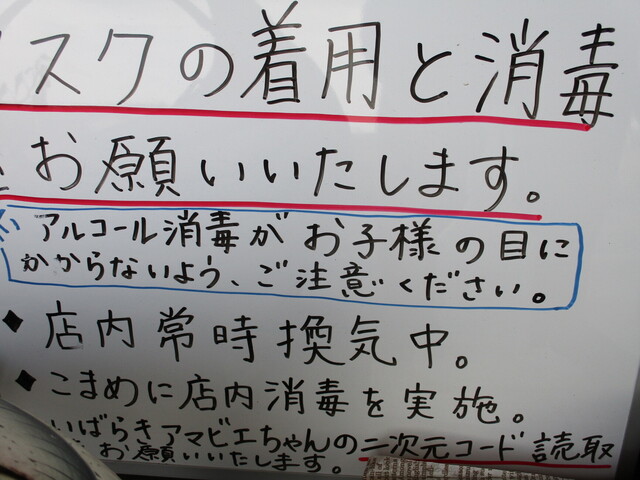 スクの着用と消毒
お願いいたします。
アルコール消毒がお子様の目に
かからないよう、ご注意ください。
◆店内常時換気中。
◆こまめに店内消毒を実施。
いばらきアマビエちゃんの二次元コード読取
お願いいたします。